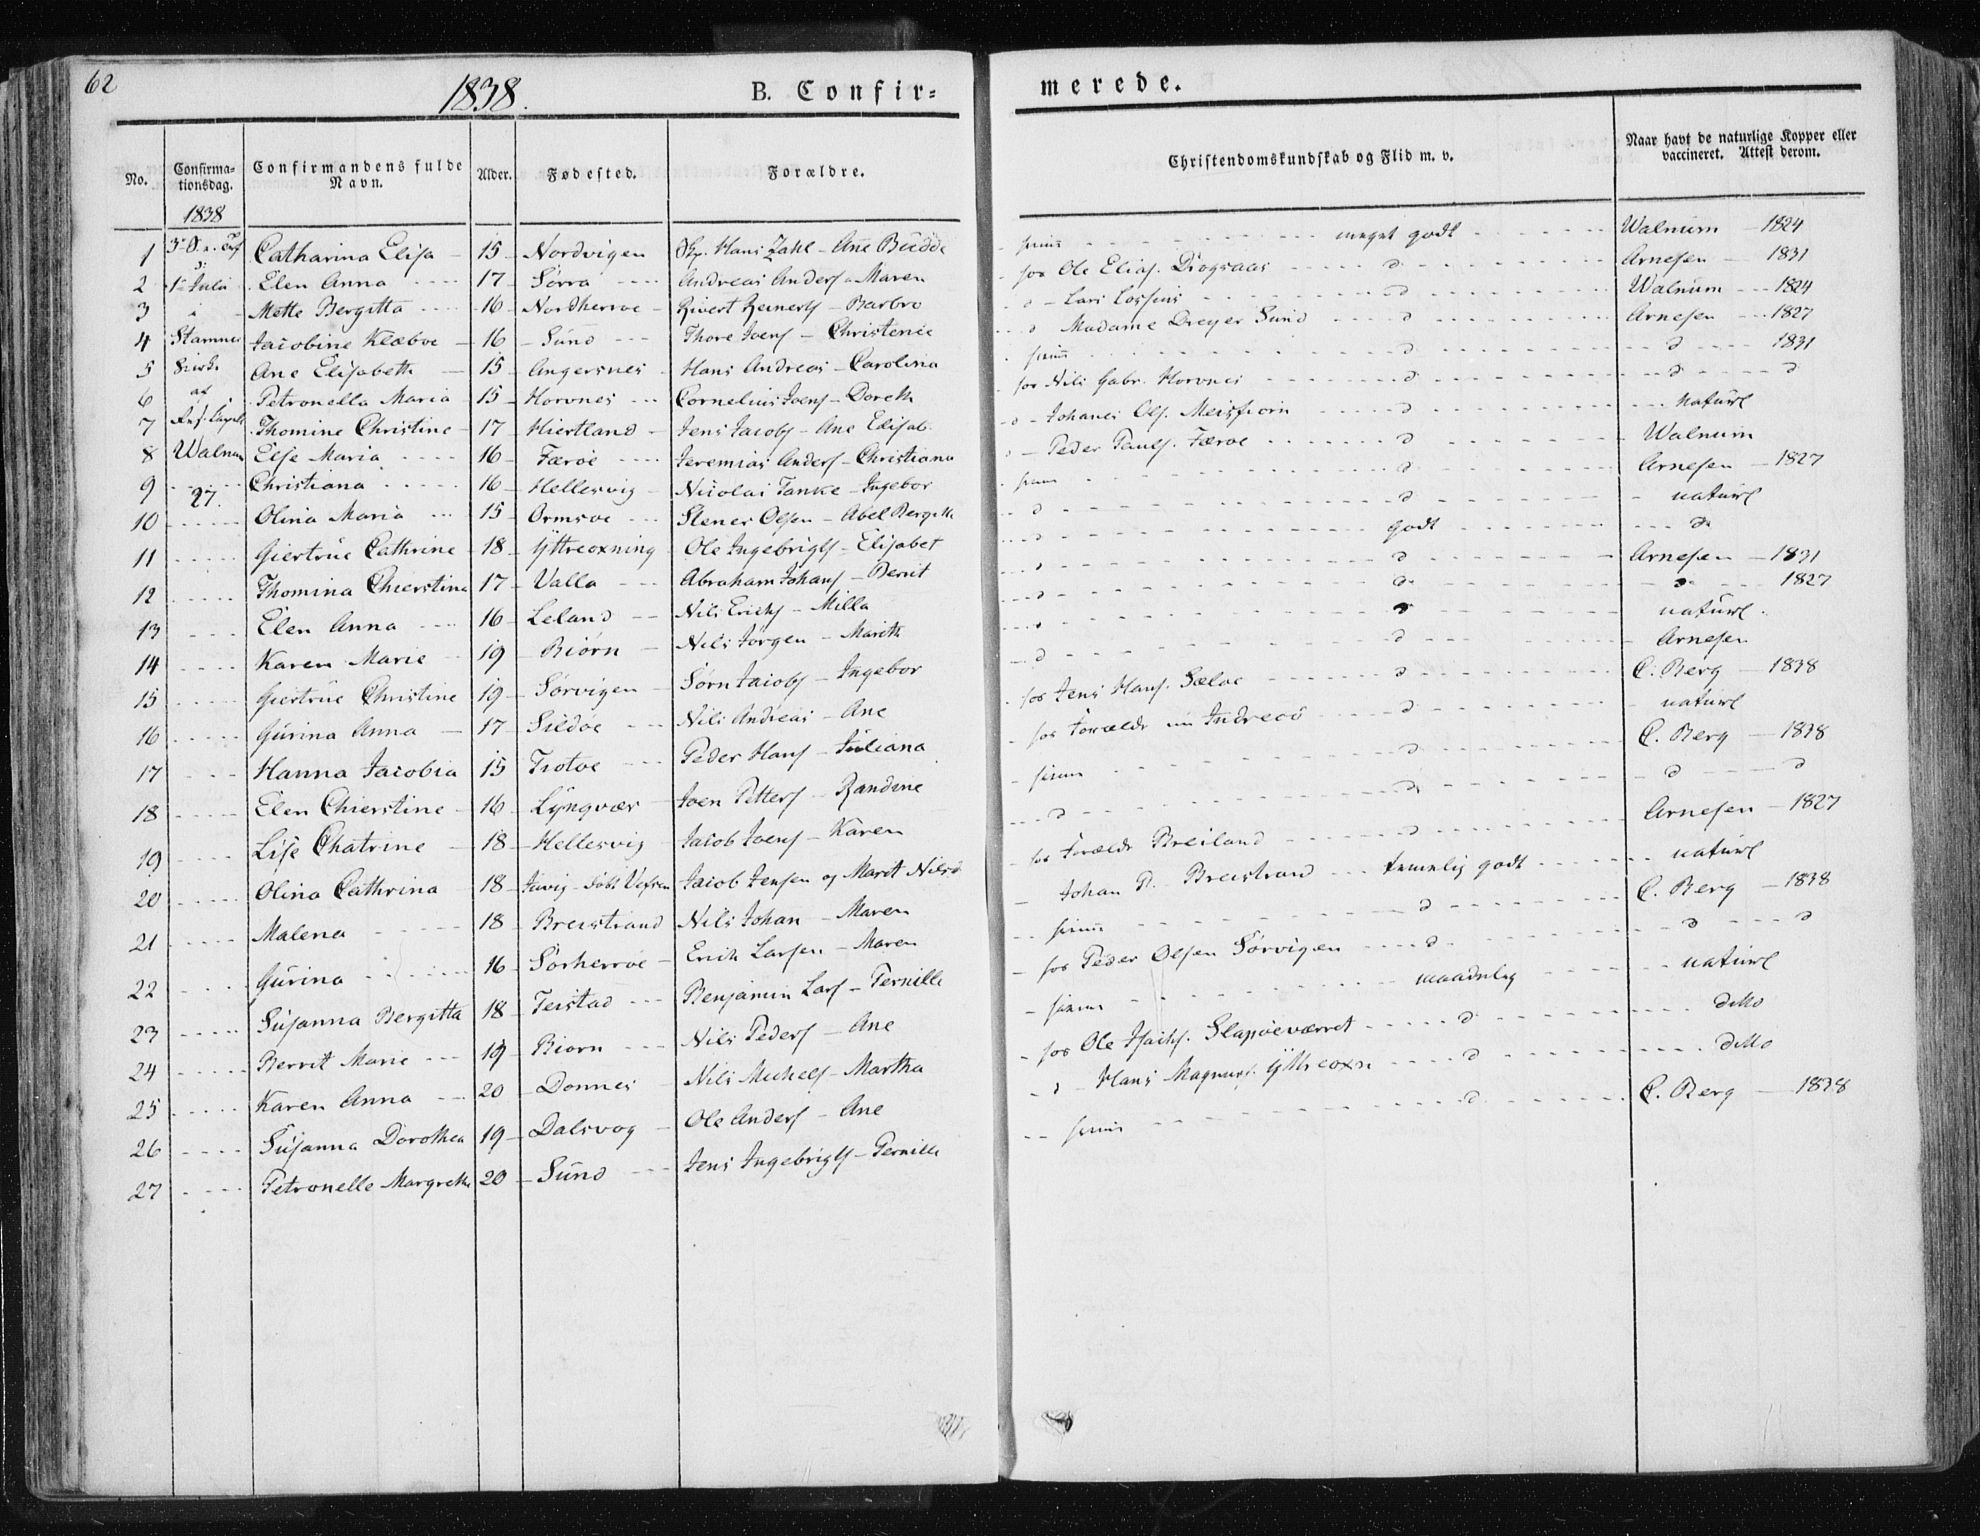 62
1838.
B. Confir= merede.
No. Confirma-tionsdag. Confirmandens fulde Navn. Alder. Fødested. Forældre. Christendomskundskab og Flid m. v. Naar havt de naturlige Kopper eller vaccineret. Attest derom.
1838
1 Catharina Elisa 15 Nordvigen Hans Zahl - Ane Budde meget godt Walnum 1824
2 Elen Anna 17 Sørra Andreas Anders - Maren for Ole Elias. d Arnesen 1831
3 Mette Bergitta 16 Nordherroe Barbro d - Lars d Walnum 1824
4 Stamnes Jacobine Klæboe 16 Sund Thore Joens - Christense d Madame Dreyer Sund d Arnesen 1827
5 Ane Elisabeth 15 Angersnes Hans Andreas - Carolina d d 1831
6 af Petronella Maria 15 Horvnes Cornelius Joens - Doreth for Nils Gabr. Horvnes d d d
7 Thomine Christine 17 Hiertland Jens Jacobs - Ane Elisab. d - Johanes Ols. d naturl
8 Walnum Else Maria 16 Færøe Jeremias Anders - Christiana d - Peder Pauls. Færoe d Walnum
9 Christiana 16 Hellesvig Nicolai Tanke - Ingebor d Arnesen 1827
27.
10 Olina Maria 15 Ormsoe Stener Olsen - Abel Bergitte d d naturl
11 Giertrue Cathrine 18 Yttreoxning Ole Ingebrigts - Elisabet d godt d
12 Thomina Chierstina 17 Valla Abraham Johans - Berit d d Arnesen 1831
13 Elen Anna 16 Leland Nils Erichs - Milla d d d 1827
14 Karen Marie 19 Biørn Nils Jørgen - Mareth d d naturl.
15 Giertrue Christine 19 Sørvigen Sørn Jacobs - Ingebor d d Arnesen
16 Gurina Anna 17 Sildoe Nils Andreas - Ane for Jens Hans. Sæloe d C. Berg 1838
17 Hanna Jacobia 15 Trotoe Peder Hans - Juliana for Forældr d naturl
18 Elen Chierstine 16 Lyngvær Joen Petters - Randine d C. Berg 1838
19 Lise Chatrine 18 Hellesvig Jacob Joens - Karen d d d d
20 Olina Cathrina 18 Jacob Jensen og Maret Nilsd for Forældr Breiland d Arnesen 1827
21 Malena 18 Breistrand Nils Johan - Maren Johan P. Breistrand temmelig godt naturl
22 Gurina 16 Sørherroe Erich Larsen - Maren d C. Berg 1838
23 Susanna Bergitta 18 Teistad Benjamin Lars - Pernille for Peder Olsen Sørvigen d d d
24 Berrit Marie 19 Biorn Nils Peders - Ane maadelig naturl
25 Karen Anna 20 Donnes Nils Michels - Martha for Ole Isachs. Slapøeværret d ditto
26 Susanna Dorothea 19 Dalsvog Ole Anders - Ane d - Hans Magnus. Yttreoxn d ditto
27 Petronelle Margrethe 20 Sund Jens Ingebrigts - Pernille d C. Berg 1838